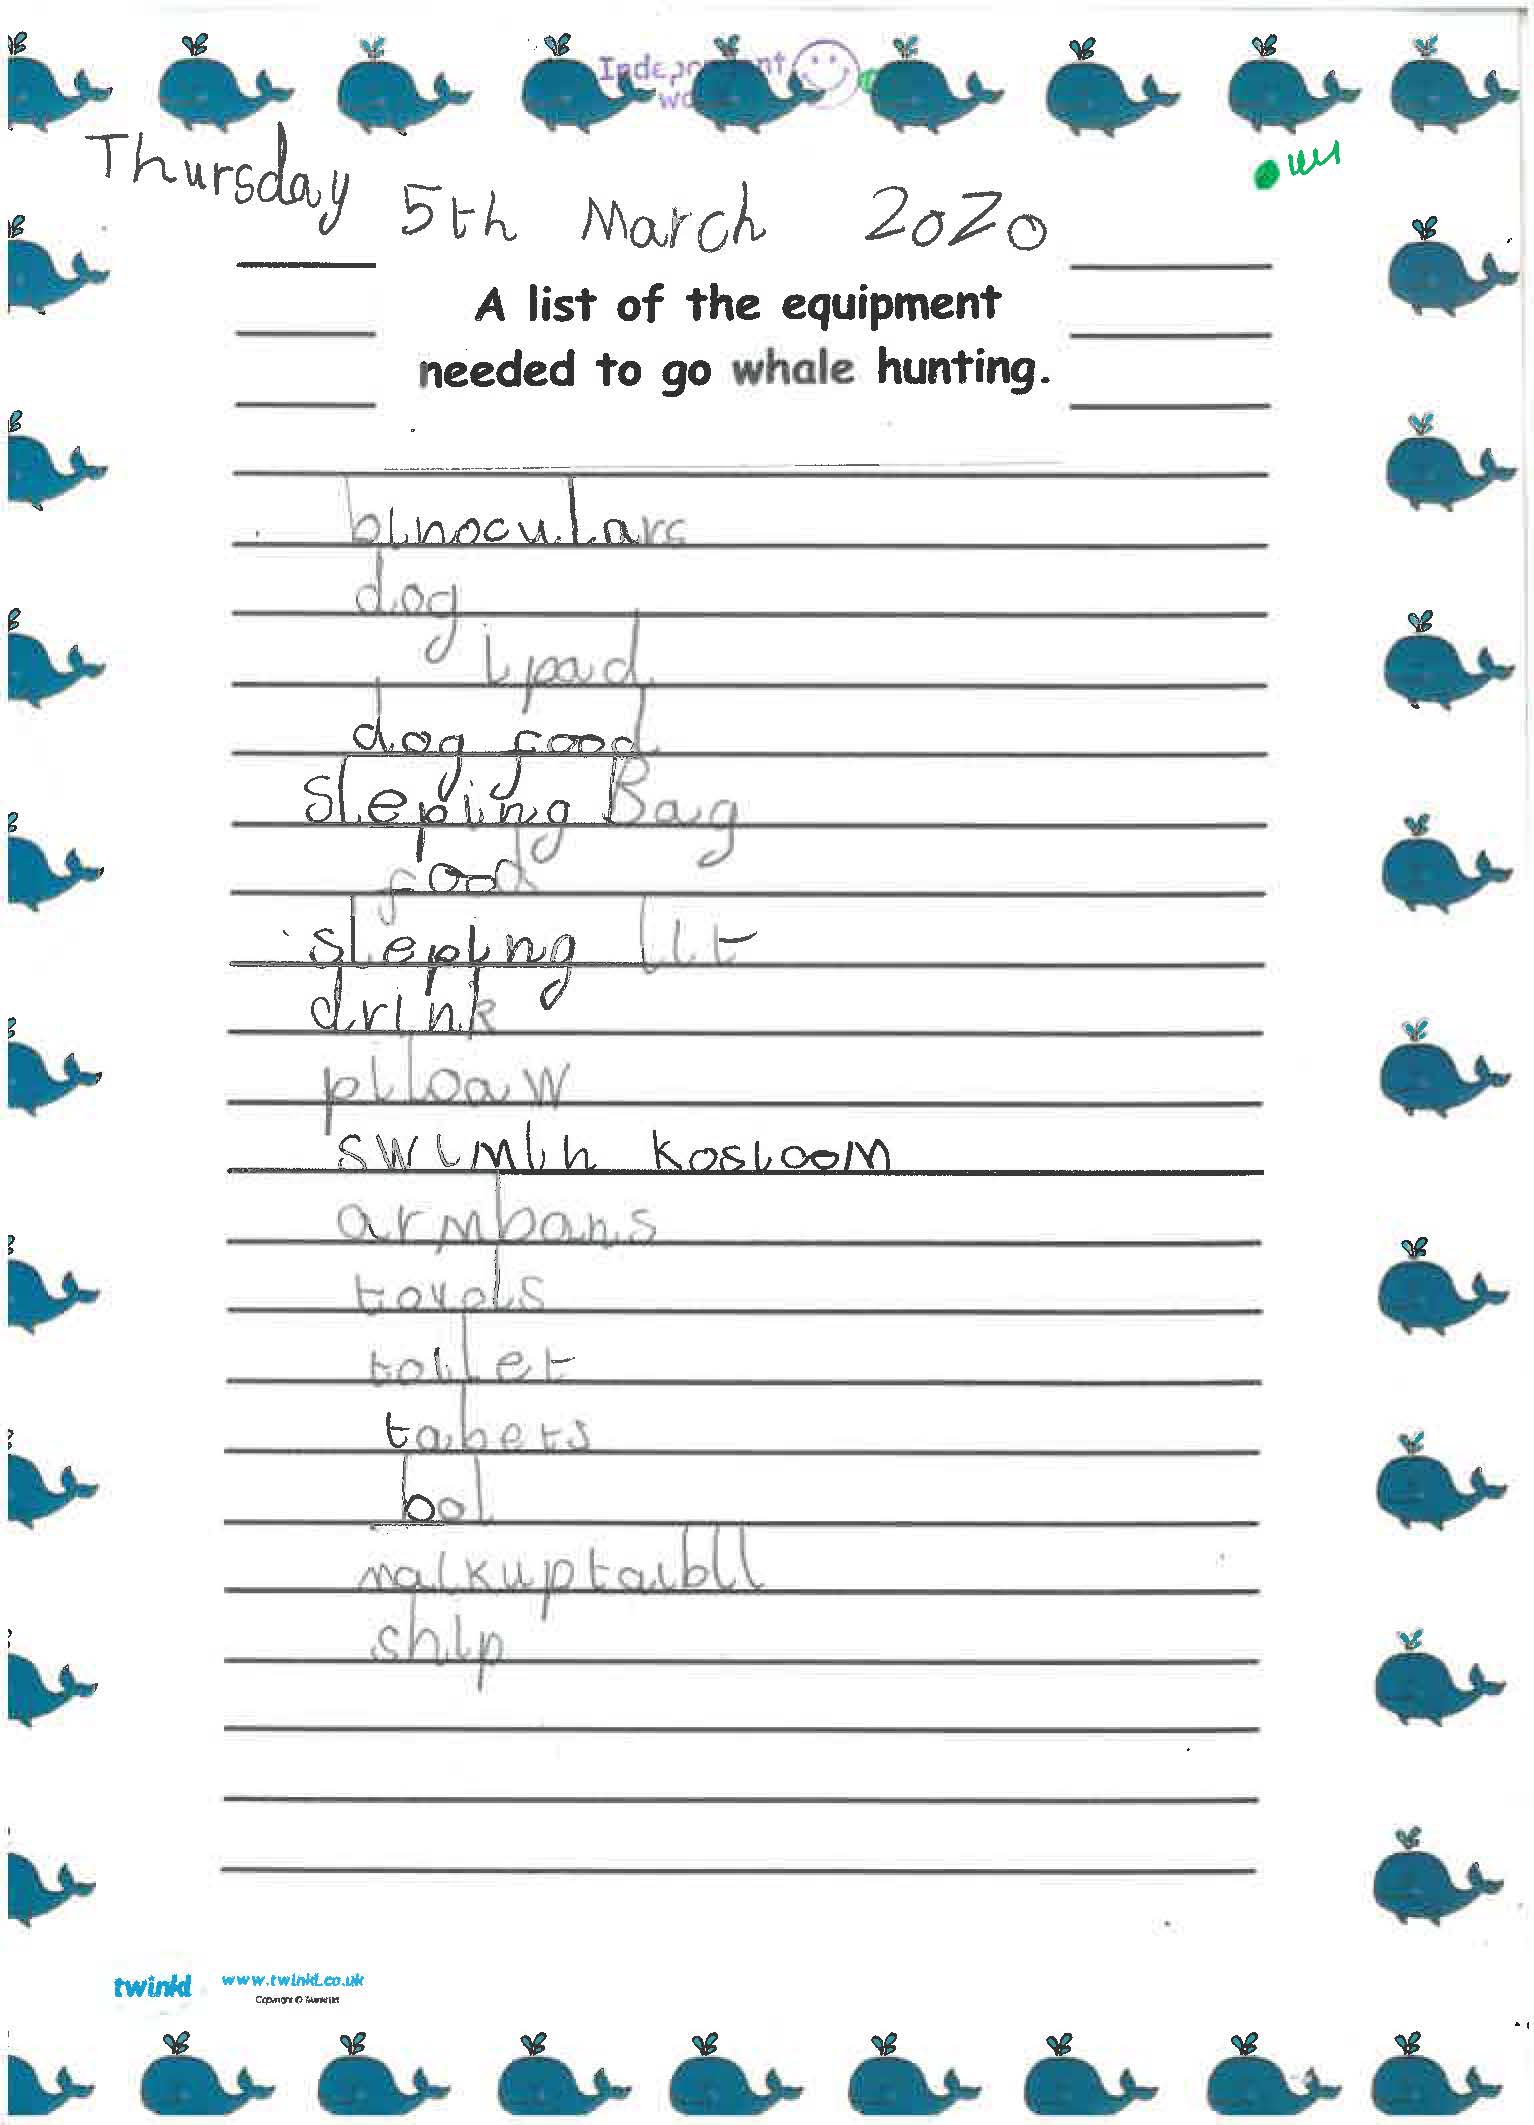 Independent
Thursday 5th March 2020
A list of the equipment
needed to go whale hunting.
binoculars
dog
ipad
dog food
sleping Bag
food
sleping lit
drink
pilloaw
swimin kosloom
armbans
towels
toilet
tabets
bol
maikuptaibll
ship
twinkl www.twinkl.co.uk
Copyright © Twinkl Ltd